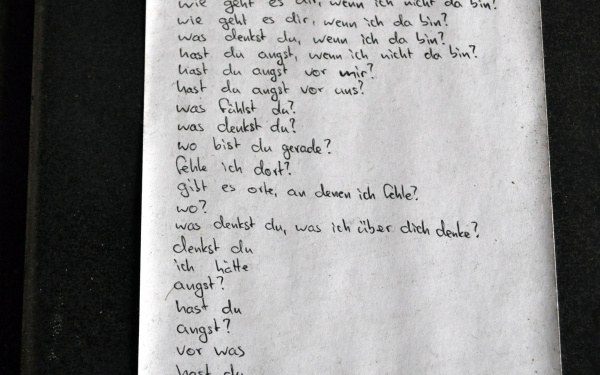 wie geht es dir, wenn ich nicht da bin?
wie geht es dir, wenn ich da bin?
was denkst du, wenn ich da bin?
hast du angst, wenn ich nicht da bin?
hast du angst vor mir?
hast du angst vor uns?
was fühlst du?
was denkst du?
wo bist du gerade?
fehle ich dort?
gibt es orte, an denen ich fehle?
wo?
was denkst du, was ich über dich denke?
denkst du
ich hätte
angst?
hast du
angst?
vor was
hast du